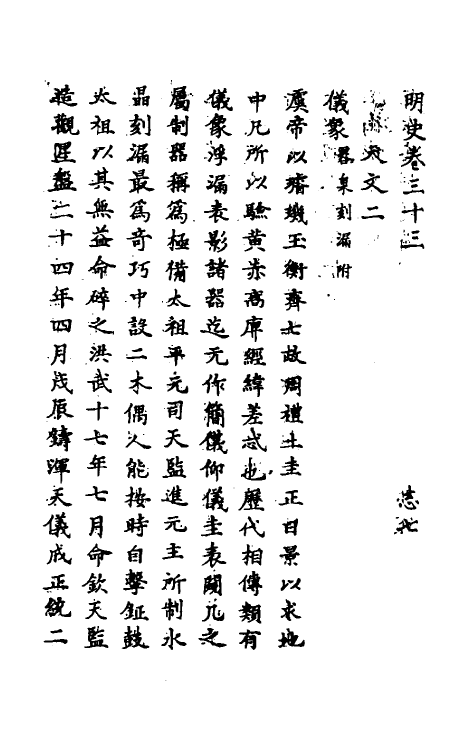 明史卷三十三
志九
天文二
儀象 晷臬刻漏附
虞帝以璿璣玉衡齊七政周禮土圭正日景以求地
中凡所以驗黃赤高庳經緯差忒也歷代相傳類有
儀象浮漏表影諸器迄元作簡儀仰儀圭表闚几之
屬制器稱為極備太祖平元司天監進元主所制水
晶刻漏最為奇巧中設二木偶人能按時自擊鉦鼓
太祖以其無益命碎之洪武十七年七月命欽天監
造觀星盤二十四年四月戊辰鑄渾天儀成正統二